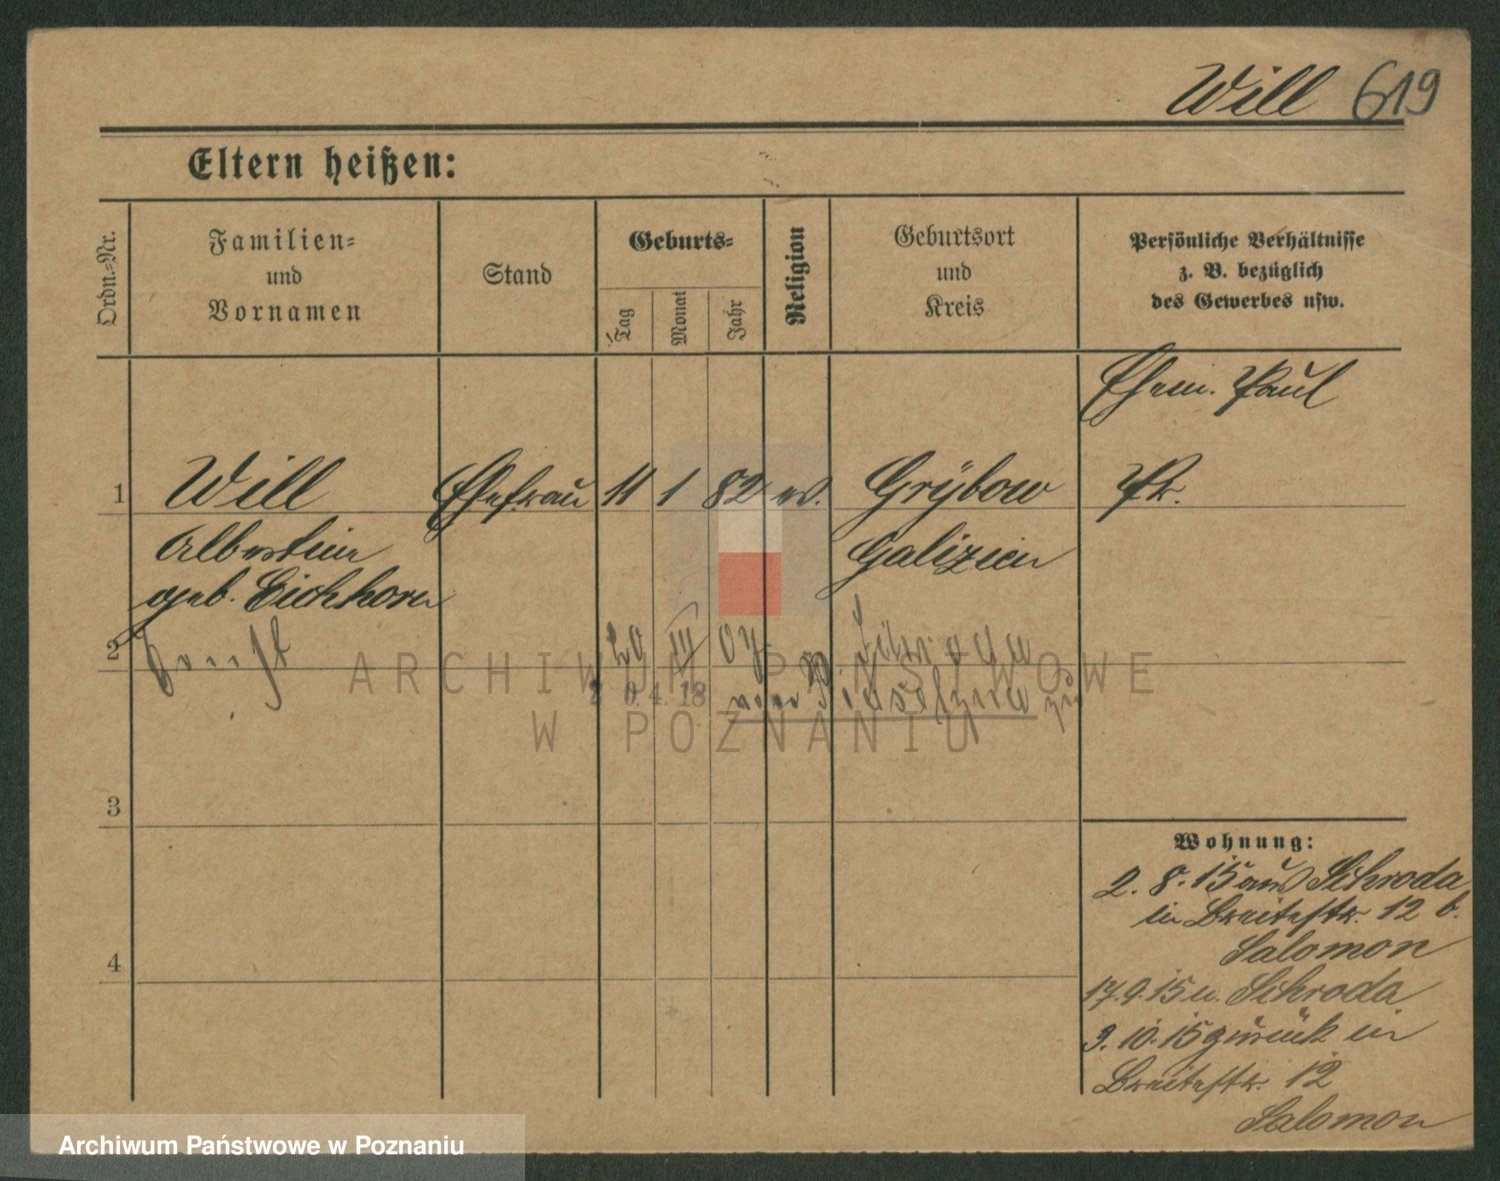 Will 619
Eltern heißen:
Ordn.-Nr.
Familien-
und
Vornamen
Stand
Geburts-
Tag
Monat
Jahr
Religion
Geburtsort
und
Kreis
Persönliche Verhältnisse
z. B. bezüglich
des Gewerbes usw.
Ehem. Paul
1 Will Ehefrau 11 1 82 ev. Grÿbow Pr.
Albertine Galizien
geb. Eichhorn
2 Horst 29 III 07 Schroda
20.4.18
zu
3
4
Wohnung:
2. 8. 15 aus Schroda
in Breitestr. 12 b.
Salomon
17.9.15 n. Schroda
3. 10. 15 zurück in
Breitestr. 12
Salomon
ARCHIWUM PAŃSTWOWE
W POZNANIU
Archiwum Państwowe w Poznaniu